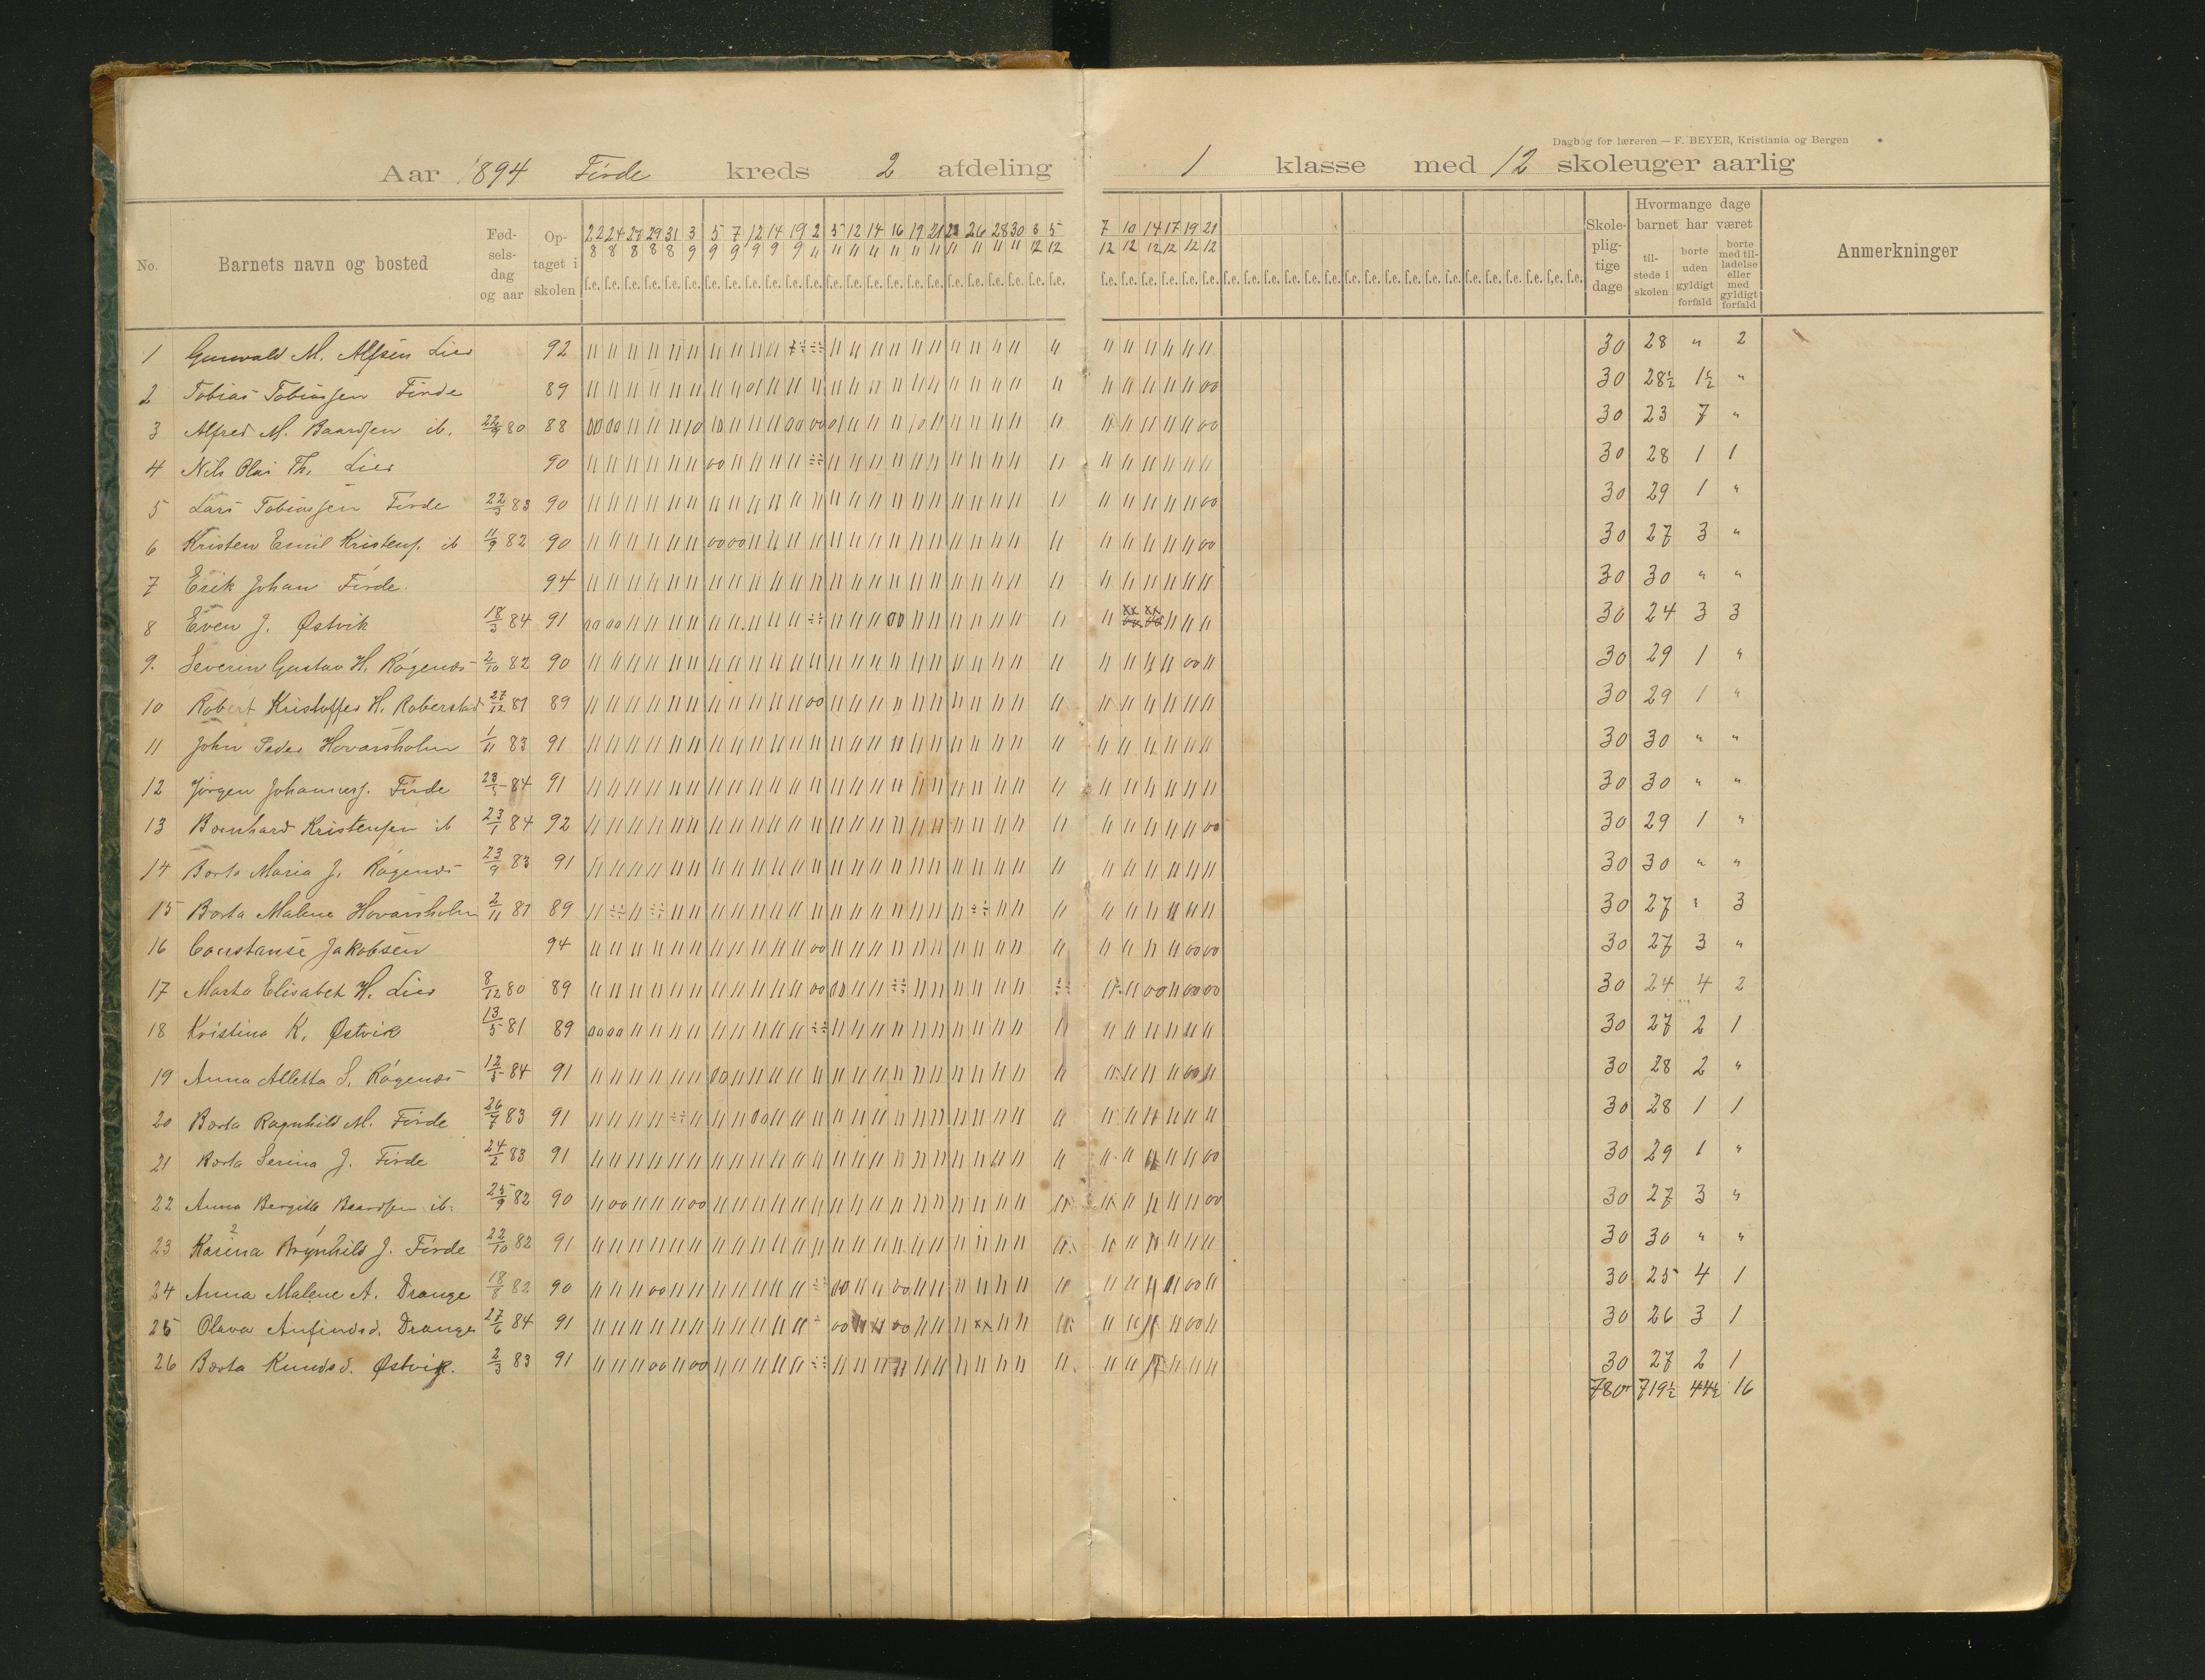 Dagbog for læreren — F. BEYER, Kristiania og Bergen
Aar 1894 Førde kreds 2 afdeling 1 klasse med 12 skoleuger aarlig
No. Barnets navn og bosted Fødselsdag og aar Optaget i skolen Skolepligtige dage Hvormange dage barnet har været tilstede i skolen borte uden gyldigt forfald borte med tilladelse eller med gyldigt forfald Anmerkninger
22/8 24/8 27/8 29/8 31/8 3/9 5/9 7/9 12/9 14/9 19/9 2/11 5/11 12/11 14/11 16/11 19/11 21/11 23/11 26/11 28/11 30/11 3/12 5/12 7/12 10/12 14/12 17/12 19/12 21/12
1 Gunvald M. Alfsen Lier 92 30 28 " 2
2 Tobias Tobiassen Førde 89 30 28½ 1½ "
3 Alfred M. Baardsen ib. 80 88 30 23 7 "
4 Nils Olai Th. Lier 90 30 28 1 1
5 Lars Tobiassen Førde 22/3 83 90 30 29 1 "
6 Kristen Emil Kristens. ib 11/9 82 90 30 27 3 "
7 Erik Johan Førde. 94 30 30 " "
8 Even J. Østvik 18/3 84 91 30 24 3 3
9. Severin Gustav H. Røgenæs 2/10 82 90 30 29 1 "
10 Robert Kristoffer H. Roberstad 27/12 81 89 30 29 1 "
11 John Peder Hovarsholm 1/11 83 91 30 30 " "
12 Jørgen Johanness. Førde 23/5 84 91 30 30 " "
13 Bernhard Kristensen ib 23/1 84 92 30 29 1 "
14 Berta Maria J. Røgenæs 23/9 83 91 30 30 " "
15 Berta Malene Hovarsholm 2/11 81 89 30 27 " 3
16 Constanse Jakobsen 94 30 27 3 "
17 Marta Elisabet H. Lier 8/12 80 89 30 24 4 2
18 Kristina K. Østvik 13/5 81 89 30 27 2 1
19 Anna Alletta S. Røgenæs 12/5 84 91 30 28 2 "
20 Berta Ragnhild M. Førde 26/7 83 91 30 28 1 1
21 Berta Serina J. Førde 24/2 83 91 30 29 1 "
22 Anna Bergitte Baardsen ib. 25/9 82 90 30 27 3 "
23 Karina Brynhild J. Førde 22/10 82 91 30 30 " "
24 Anna Malene A. Drange 18/8 82 90 30 25 4 1
25 Olava Anfindsd. Drange 27/6 84 91 30 26 3 1
26 Berta Knudsd. Østvik. 2/3 83 91 30 27 2 1
780 719½ 44½ 16